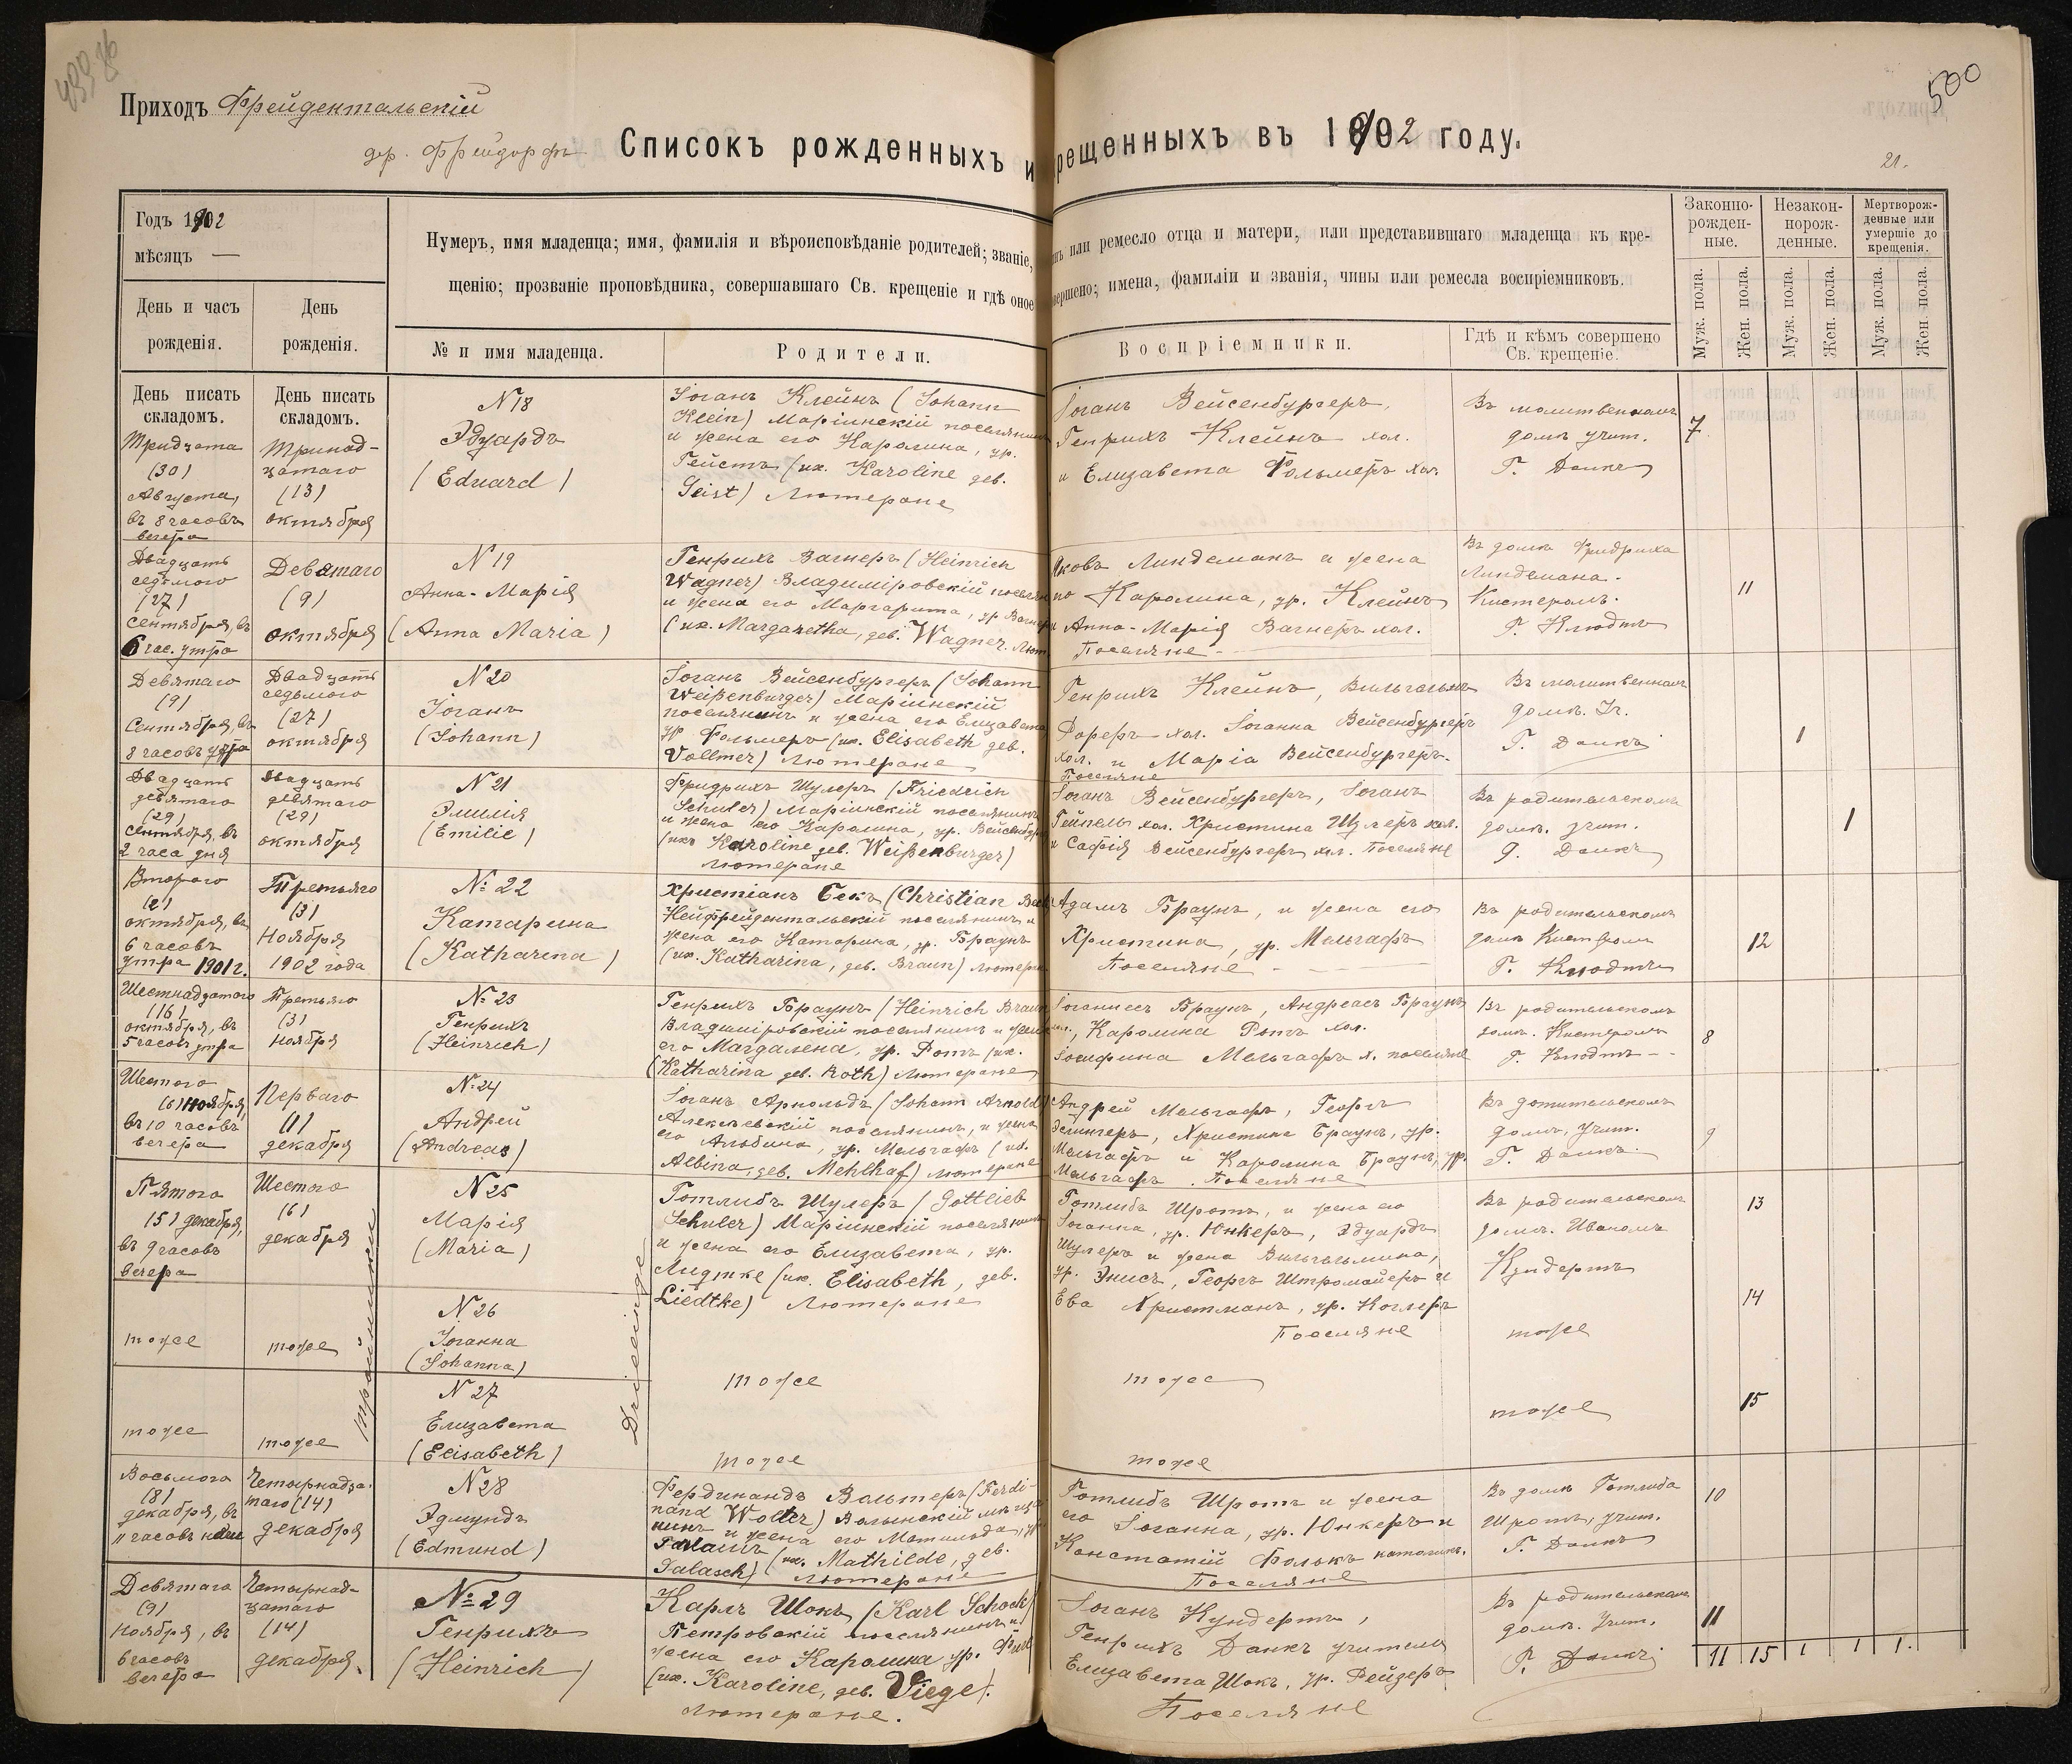 Приходъ Фрейдентальскій
дер. Фрейдорфъ
Списокъ рожденныхъ и крещенныхъ въ 1902 году.
500
21.
Годъ 1902
мѣсяцъ —
Нумеръ, имя младенца; имя, фамилія и вѣроисповѣданіе родителей; званіе,
чинъ или ремесло отца и матери, или представившаго младенца къ кре-
щенію; прозваніе проповѣдника, совершавшаго Св. крещеніе и гдѣ оное
совершено; имена, фамиліи и званія, чины или ремесла воспріемниковъ.
Законно-
рожден-
ные.
Незакон-
норож-
денные.
Мертворож-
денные или
умершіе до
крещенія.
День и часъ
рожденія.
День
рожденія.
№ и имя младенца.
Родители.
Воспріемники.
Гдѣ и кѣмъ совершено
Св. крещеніе.
Муж. пола.
Жен. пола.
Муж. пола.
Жен. пола.
Муж. пола.
Жен. пола.
День писать
складомъ.
День писать
складомъ.
Тридцата
(30)
Августа,
въ 8 часовъ
вечера
Тринад-
цатаго
(13)
октября
N 18
Эдуардъ
(Eduard)
Іоганъ Клейнъ (Johann
Klein) Маріинскій поселянинъ
и жена его Каролина, ур.
Гейстъ (их. Karoline деб.
Geist) Лютеране
Іоганъ Вейсенбургеръ,
Генрихъ Клейнъ хол.
и Елизавета Фольмеръ хол.
Въ молитвенномъ
домѣ учит.
Г. Данкъ
7
Двадцать
седьмого
(27)
сентября, въ
6 час. утра
Девятаго
(9)
октября
N 19
Анна-Марія
(Anna Maria)
Генрихъ Вагнеръ (Heinrich
Wagner) Владиміровскій поселян
и жена его Маргарита, ур Вагнеръ
(их. Margaretha, деб. Wagner. Лют.
Яковъ Линдеманъ и жена
Каролина, ур. Клейнъ
и Анна-Марія Вагнеръ хол.
Поселяне
Въ домѣ Фридриха
Линдемана.
Кистеромъ.
Г. Клюдтъ
11
Девятаго
(9)
Сентября, въ
8 часовъ утра
Двадцать
седьмого
(27)
октября
N 20
Іоганъ
(Johann)
Іоганъ Вейсенбургеръ (Johann
Weißenburger) Маріинскій
поселянинъ и жена его Елизавета
ур Фольмеръ (их. Elisabeth деб.
Vollmer) Лютеране
Генрихъ Клейнъ, Вильгельмъ
Фореръ хол. Іоганна Вейсенбургеръ
хол. и Маріа Вейсенбургеръ.
Поселяне
Въ молитвенномъ
домѣ. Уч.
Г. Данкъ
1
Двадцать
девятаго
(29)
сентября, въ
2 часа дня
Двадцать
девятаго
(29)
октября
N 21
Эмилія
(Emilie)
Фридрихъ Шулеръ (Friedrich
Schuler) Маріинскій поселянинъ
и жена его Каролина, ур. Вейсенбур
(их Karoline деб. Weißenburger)
Лютеране
Іоганъ Вейсенбургеръ, Іоганъ
Гейпель хол. Христина Шулеръ хол.
и Сафія Вейсенбургеръ хол. Поселяне
Въ родительскомъ
домѣ. учит.
Г. Данкъ
1
Второго
(2)
октября, въ
6 часовъ
утра 1901 г.
Третьяго
(3)
Ноября
1902 года
№ 22
Катарина
(Katharina)
Христіанъ Бекъ (Christian Beck
Нейфрейдентальскій поселянинъ и
жена его Катарина, ур. Браунъ
(их. Katharina, деб. Braun) Лютеране
Адамъ Браунъ, и жена его
Христина, ур. Мельгафъ
Поселяне
Въ родительскомъ
домѣ Кистеромъ
Г. Клюдтъ
12
Шестнадцатого
(16)
октября, въ
5 часовъ утра
Третьяго
(3)
ноября
№ 23
Генрихъ
(Heinrich)
Генрихъ Браунъ (Heinrich Braun
Владиміровскій поселянинъ и жена
его Магдалена, ур. Ротъ (их.
(Katharina деб. Roth) Лютеране
Іоганнесъ Браунъ, Андреасъ Браунъ
хол., Каролина Ротъ хол.
Іозефина Мельгафъ х. поселяне
Въ родительскомъ
домѣ. Кистеромъ
Г. Клюдтъ
8
Шестого
(6) ноября,
въ 10 часовъ
вечера
Перваго
(1)
декабря
№ 24
Андрей
(Andreas)
Іоганъ Арнольдъ (Johann Arnold)
Алексѣевскій поселянинъ, и жена
его Альбина, ур. Мельгафъ (их.
Albina, деб. Mehlhaf) Лютеране
Андрей Мельгафъ, Георгъ
Христина Браунъ, ур.
Мельгафъ и Каролина Браунъ, ур.
Мельгафъ. Поселяне
домѣ, учит.
Г. Данкъ.
9
Пятого
(5) декабря,
въ 9 часовъ
вечера
Шестого
(6)
декабря
N 25
Марія
(Maria)
Готлибъ Шулеръ (Gottlieb
Schuler) Маріинскій поселянинъ
и жена его Елизавета, ур.
Лидтке (их. Elisabeth, деб.
Liedtke) Лютеране
Готлибъ Шротъ, и жена его
Іоганна, ур. Юнкеръ, Эдуардъ
Шулеръ и жена Вильгельмина,
ур. Энисъ, Георгъ Штромайеръ и
Ева Христманъ, ур. Коглеръ
Поселяне
Въ родительскомъ
домѣ. Иваномъ
Кундертъ
13
тройники
Drillinge
тоже
тоже
N 26
Іоганна
(Johanna)
тоже
тоже
тоже
14
тоже
тоже
N 27
Елизавета
(Elisabeth)
тоже
тоже
тоже
15
Восьмого
(8)
декабря, въ
11 часовъ ночи
Четырнадца-
таго (14)
декабря
N 28
Эдмундъ
(Edmund)
Фердинандъ Вольтеръ (Ferdi-
nand Wolter) Волынскій мѣща
нинъ и жена его Матильда, ур
(их. Mathilde, деб.
Лютеране
Готлибъ Шротъ и жена
его Іоганна, ур. Юнкеръ и
Констатій Фолькъ католикъ.
Поселяне
Въ домѣ Готлиба
Шротъ, учит.
Г. Данкъ
10
Девятаго
(9)
Ноября, въ
6 часовъ
вечера
Четырнад-
цатаго
(14)
декабря.
№ 29
Генрихъ
(Heinrich)
Карлъ Шокъ (Karl Schock)
Петровскій поселянинъ и
жена его Каролина ур.
(их. Karoline, деб. Viege).
Лютеране.
Іоганъ Кундертъ,
Генрихъ Данкъ учитель
Елизавета Шокъ, ур. Рейзеръ
Поселяне
Въ родительскомъ
домѣ. Учит.
Г. Данкъ
11
11 15 1 1 1.